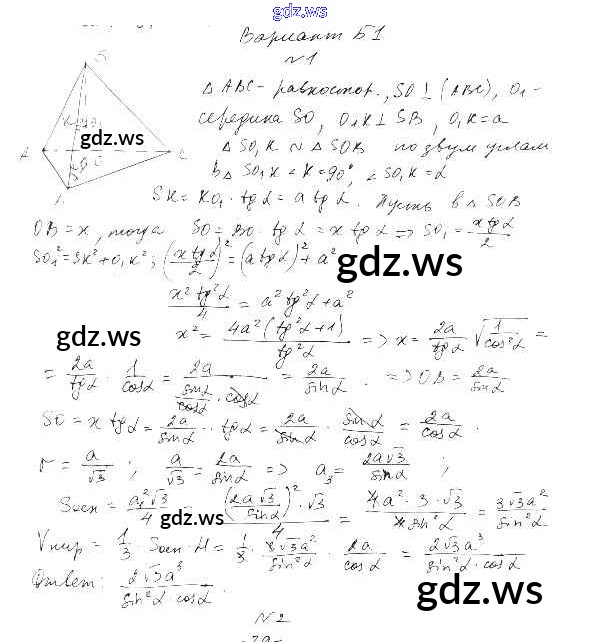 gdz.ws
Вариант Б1
№1
△ABC - равностор., SO⊥(ABC), O₁ -
середина SO, O₁K⊥SB, O₁K=a
△SO₁K ∾ △SOB по двум углам
В △SO₁K ∠K=90°, ∠SO₁K=α
SK=KO₁·tgα=a tgα. Пусть в △SOB
OB=x, тогда SO=BO·tgα=x tgα => SO₁=x tgα/2
SO₁²=SK²+O₁K²; (x tgα/2)²=(a tgα)²+a²
x² tg²α/4 = a² tg²α+a²
x² = 4a²(tg²α+1)/tg²α => x = 2a/tgα · √(1/cos²α) =
= 2a/tgα · 1/cosα = 2a/(sinα/cosα · cosα) = 2a/sinα. => OB = 2a/sinα
SO = x tgα = 2a/sinα · tgα = 2a/sinα · sinα/cosα = 2a/cosα.
r = a/√3; a/√3 = 2a/sinα => a₃ = 2a√3/sinα;
Sосн = a₃²√3/4 = (2a√3/sinα)²·√3/4 = 4a²·3·√3/4sin²α = 3√3a²/sin²α
Vпир = 1/3 Sосн·H = 1/3 · 3√3a²/sin²α · 2a/cosα = 2√3a³/sin²α·cosα
Ответ: 2√3a³/sin²α·cosα.
№2
S
A
C
O
gdz.ws
gdz.ws
gdz.ws
gdz.ws
gdz.ws